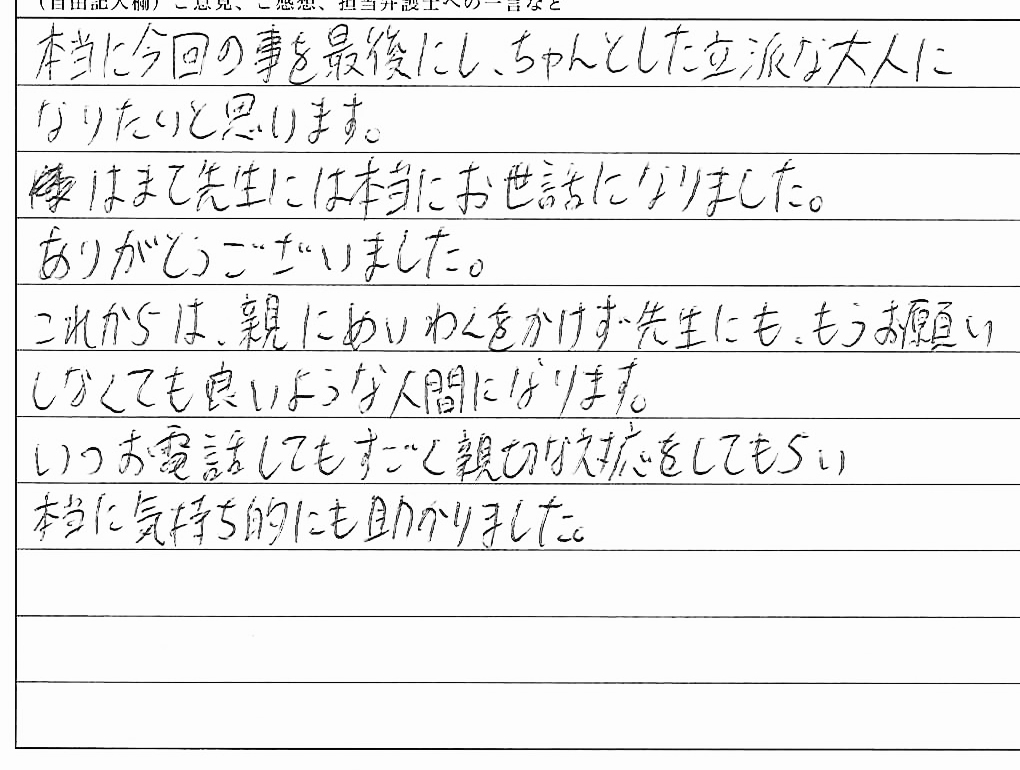 (自由記入欄) ご意見、ご感想、担当弁護士への一言など
本当に今回の事を最後にし、ちゃんとした立派な大人に
なりたいと思います。
はまて先生には本当にお世話になりました。
ありがとうございました。
これからは、親にめいわくをかけず先生にも、もうお願い
しなくても良いような人間になります。
いつお電話してもすごく親切な対応をしてもらい
本当に気持ち的にも助かりました。